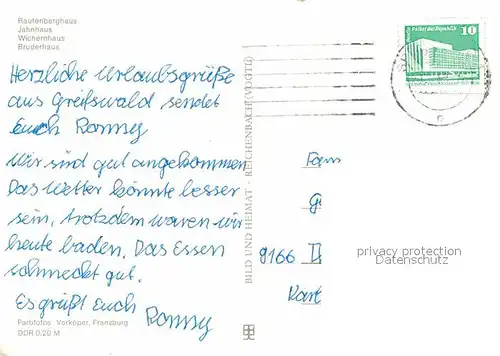 Rautenberghaus
Jahnhaus
Wichernhaus
Bruderhaus
Herzliche Urlaubsgrüße
aus Greifswald sendet
Euch Ronny
Wir sind gut angekommen.
Das Wetter könnte besser
sein, trotzdem waren wir
heute baden. Das Essen
schmeckt gut.
Es grüßt Euch
Ronny
Farbfotos Vorkoper, Franzburg
DDR 0,20 M
BILD UND HEIMAT · REICHENBACH (VOGTL)
Palast der Republik
10
Fam
9166
privacy protection
Datenschutz